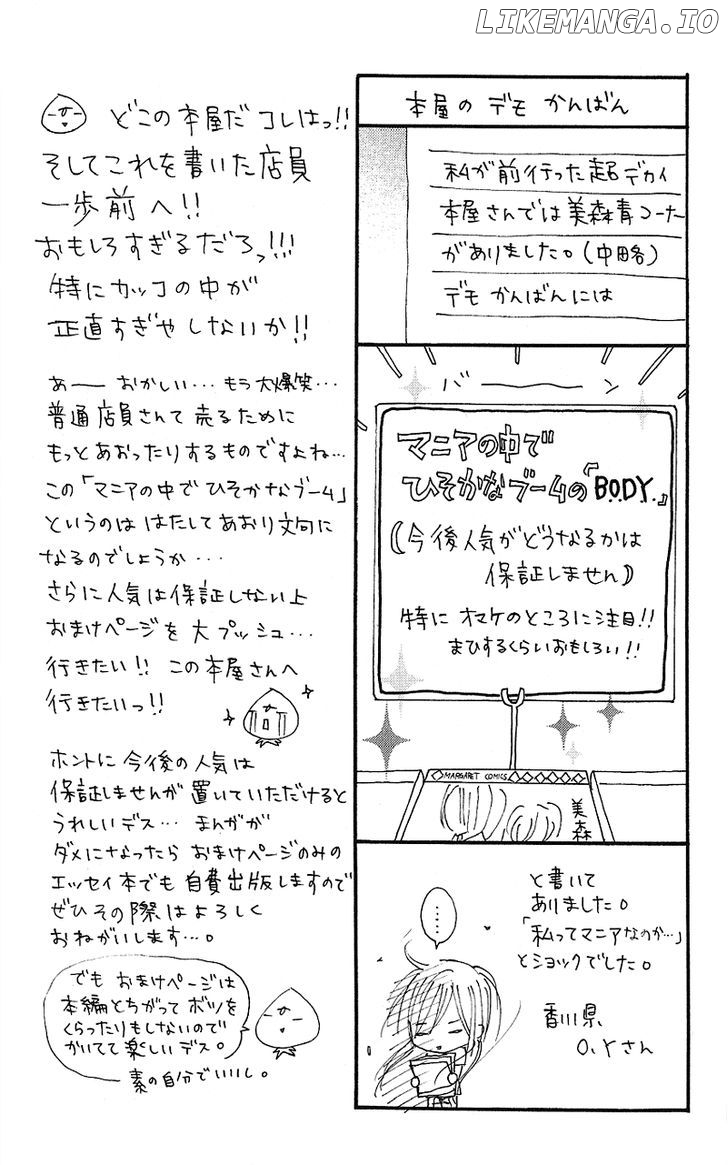 LIKEMANGA.IO
本屋の デモ かんばん
私が前行った超デカイ
本屋さんでは美森青コーナー
がありました。(中略)
デモ かんばんには
バーーン
マニアの中で
ひそかなブームの「BODY.」
(今後人気がどうなるかは
保証しません)
特に オマケのところに注目!!
まひするくらいおもしろい!!
MARGARET COMICS
美森
と書いて
ありました。
「私ってマニアなのか…」
とショックでした。
香川県
O.Yさん
どこの本屋だ コレはっ!!
そしてこれを書いた店員
一歩前へ!!
おもしろすぎるだろっ!!!
特にカッコの中が
正直すぎや しないか!!
あーー おかしい… もう大爆笑…
普通店員さんて 売るために
もっとあおったりするものですよね…
この「マニアの中で ひそかなブーム」
というのは はたしてあおり文句に
なるのでしょうか…
さらに人気は保証しない上
おまけページを 大プッシュ…
行きたい!! この本屋さんへ
行きたいっ!!
ホントに今後の人気は
保証しませんが 置いていただけると
うれしいデス… まんがが
ダメになったら おまけページのみの
エッセイ本でも 自費出版しますので
ぜひその際はよろしく
おねがいします…。
でも おまけページは
本編とちがって ボツを
くらったりもしないので
かいてて楽しいデス。
素の自分でいいし。